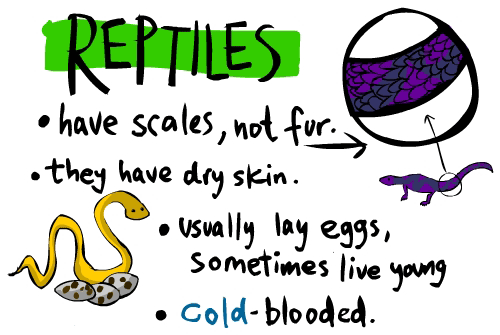 REPTILES
• have scales, not fur.
• they have dry skin.
• usually lay eggs,
sometimes live young
• cold-blooded.